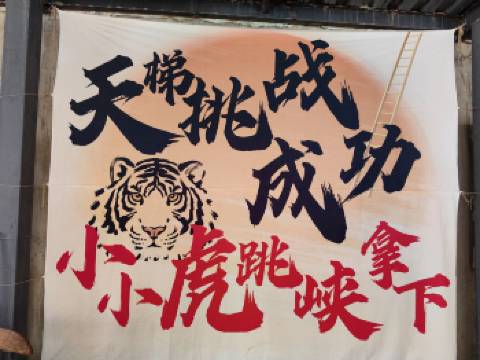 天梯挑战
成功
小小虎跳峡拿下